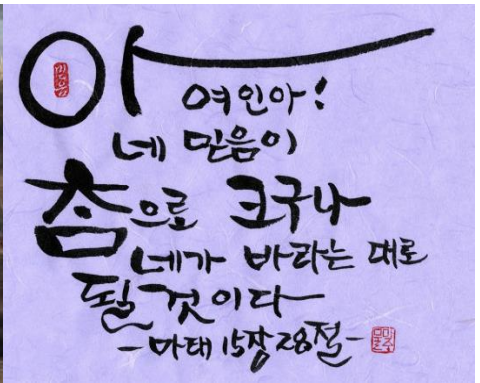 아
여인아!
네 믿음이
참으로 크구나
네가 바라는 대로
될 것이다
-마태 15장 28절-